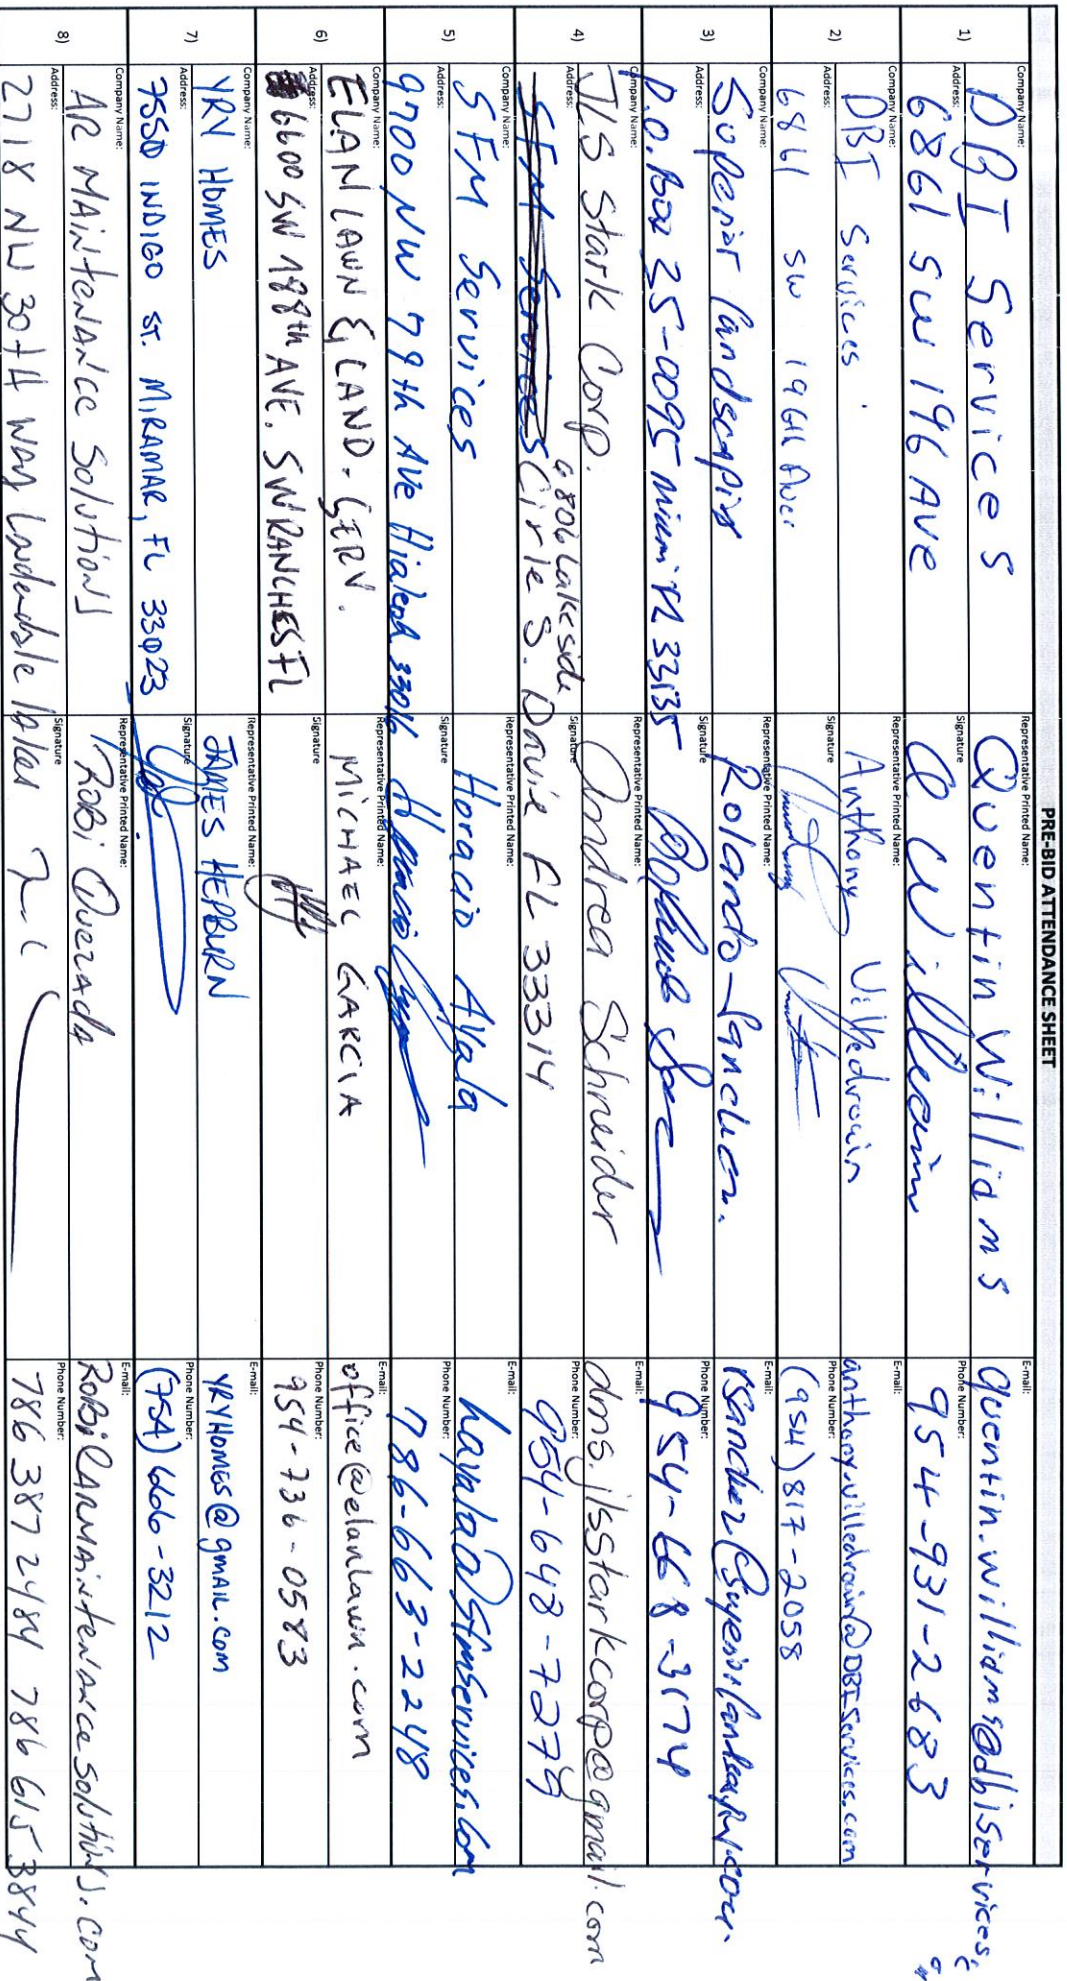 PRE-BID ATTENDANCE SHEET
1)
Company Name: DBI Services
Representative Printed Name: Quentin Williams
E-mail: quentin.williams@dbiservices.c
om
Address: 6861 SW 196 AVE
Signature Q Williams
Phone Number: 954-931-2683
2)
Company Name: DBI Services
Representative Printed Name: Anthony Villedrouin
E-mail: anthony.villedrouin@DBIServices.com
Address: 6861 SW 196th Ave.
Signature
Phone Number: (954) 817-2058
3)
Company Name: Superior Landscaping
Representative Printed Name: Rolando Sanchez.
E-mail:
Address: P.O. Box 35-0095 Miami FL 33135
Signature Rolando
Phone Number: 954-668-3174
4)
Company Name: JLS Stark Corp.
Representative Printed Name: Andrea Schneider
E-mail: dms.jlsstarkcorp@gmail.com
Address: SFM Services 6806 Lakeside
Cirle S. Davie FL 33314
Signature
Phone Number: 954-648-7279
5)
Company Name: SFM Services
Representative Printed Name: Horacio Ayala
E-mail: hayala@sfmservices.com
Address: 9700 NW 79th Ave Hialeah 33016
Signature Horacio
Phone Number: 786-663-2248
6)
Company Name: ELAN LAWN & LAND. SERV.
Representative Printed Name: MICHAEL GARCIA
E-mail: office@elanlawn.com
Address: 6600 SW 188th AVE. SW RANCHES FL
Signature
Phone Number: 954-736-0583
7)
Company Name: YRY HOMES
Representative Printed Name: JAMES HEPBURN
E-mail: YRYHOMES@gmail.com
Address: 7550 INDIGO ST. MIRAMAR, FL 33023
Signature
Phone Number: (754) 666-3212
8)
Company Name: AR MAintenance Solutions
Representative Printed Name: Robi Quezada
E-mail: Robi@ARMAintenanceSolutions.com
Address: 2718 NW 30tH Way Lauderdale lakes
Signature
Phone Number: 786 387 2484 786 615 3844